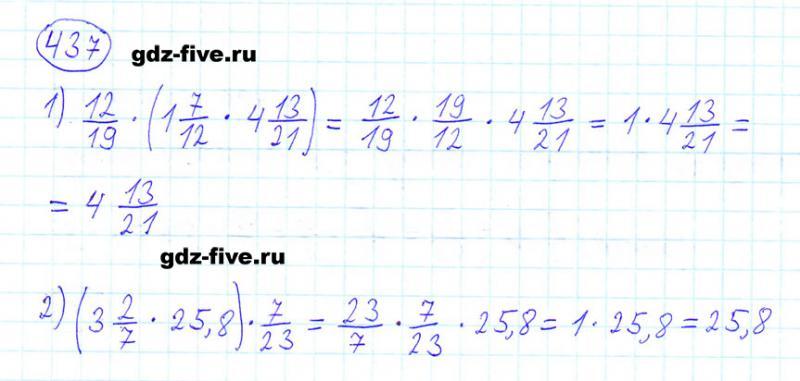 437 gdz-five.ru
1) 12/19 · (1 7/12 · 4 13/21) = 12/19 · 19/12 · 4 13/21 = 1 · 4 13/21 =
= 4 13/21
gdz-five.ru
2) (3 2/7 · 25,8) · 7/23 = 23/7 · 7/23 · 25,8 = 1 · 25,8 = 25,8